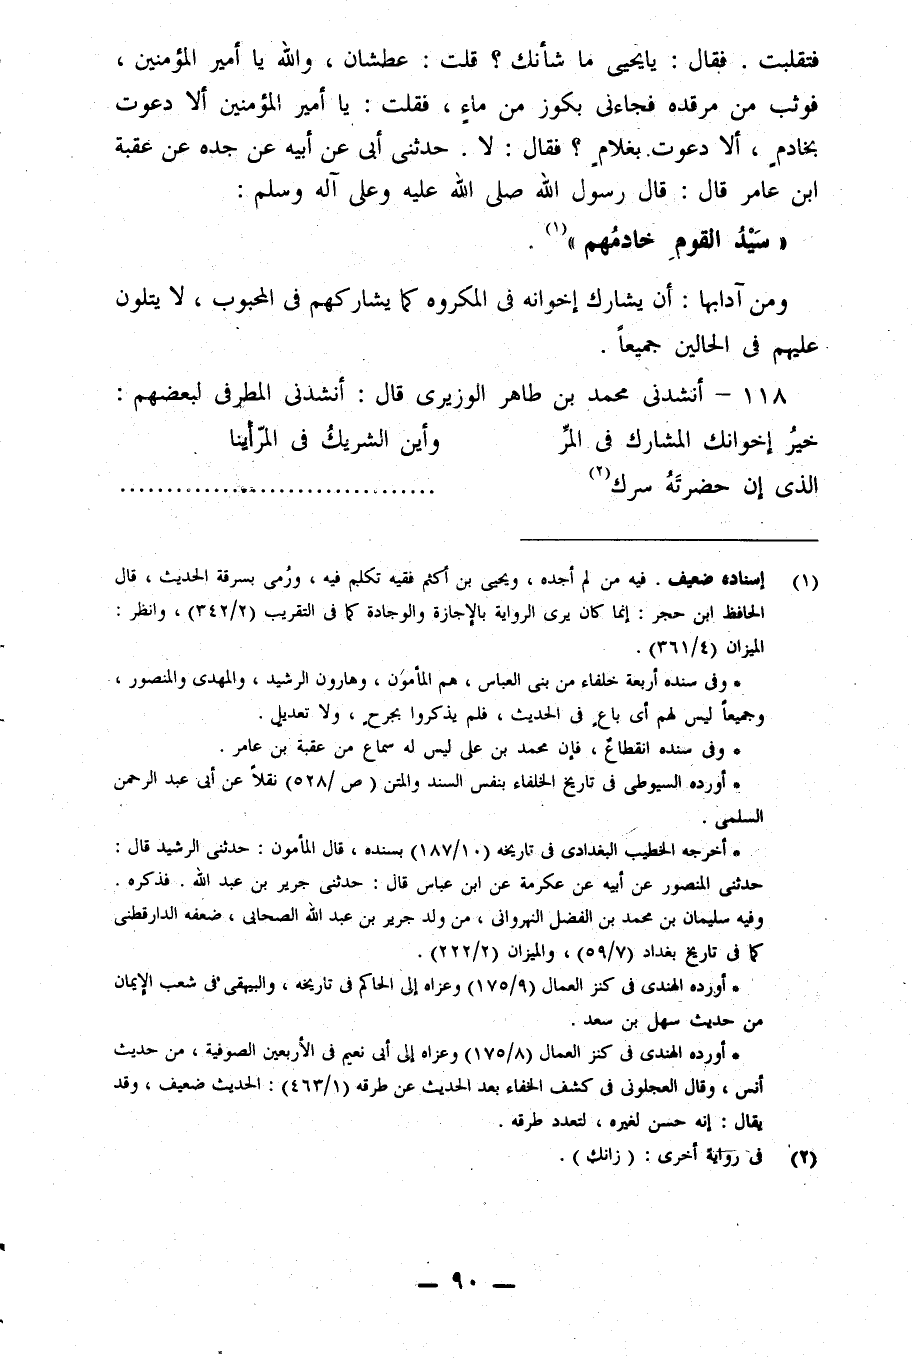 فتقلبت . فقال : يايحيى ما شأنك ؟ قلت : عطشان ، والله يا أمير المؤمنين ،
فوثب من مرقده فجاءنى بكوز من ماءٍ ، فقلت : يا أمير المؤمنين ألا دعوت
بخادمٍ ، ألا دعوت بغلامٍ ؟ فقال : لا . حدثنى أبى عن أبيه عن جده عن عقبة
ابن عامر قال : قال رسول الله صلى الله عليه وعلى آله وسلم :
« سَيْدُ القومِ خادمُهم »(١) .
ومن آدابها : أن يشارك إخوانه فى المكروه كما يشاركهم فى المحبوب ، لا يتلون
عليهم فى الحالين جميعاً .
١١٨ – أنشدنى محمد بن طاهر الوزيرى قال : أنشدنى المطرفى لبعضهم :
خيرُ إخوانك المشارك فى المرِّ وأين الشريكُ فى المرّأينا
الذى إن حضرتَهُ سرك(٢) ................................
(١) إسناده ضعيف . فيه من لم أجده ، ويحيى بن أكثم فقيه تكلم فيه ، ورُمى بسرقة الحديث ، قال
الحافظ ابن حجر : إنما كان يرى الرواية بالإجازة والوجادة كما فى التقريب (٣٤٢/٢) ، وانظر :
الميزان (٣٦١/٤) .
• وفى سنده أربعة خلفاء من بنى العباس ، هم المأمون ، وهارون الرشيد ، والمهدى والمنصور ،
وجميعاً ليس لهم أى باعٍ فى الحديث ، فلم يذكروا بجرحٍ ، ولا تعديلٍ .
• وفى سنده انقطاعٌ ، فإن محمد بن على ليس له سماع من عقبة بن عامر .
• أورده السيوطى فى تاريخ الخلفاء بنفس السند والمتن ( ص /٥٢٨) نقلاً عن أبى عبد الرحمن
السلمى .
• أخرجه الخطيب البغدادى فى تاريخه (١٨٧/١٠) بسنده ، قال المأمون : حدثنى الرشيد قال :
حدثنى المنصور عن أبيه عن عكرمة عن ابن عباس قال : حدثنى جرير بن عبد الله . فذكره .
وفيه سليمان بن محمد بن الفضل النهروانى ، من ولد جرير بن عبد الله الصحابى ، ضعفه الدارقطنى
كما فى تاريخ بغداد (٥٩/٧) ، والميزان (٢٢٢/٢) .
• أورده الهندى فى كنز العمال (١٧٥/٩) وعزاه إلى الحاكم فى تاريخه ، والبيهقى فى شعب الإيمان
من حديث سهل بن سعد .
• أورده الهندى فى كنز العمال (١٧٥/٨) وعزاه إلى أبى نعيم فى الأربعين الصوفية ، من حديث
أنس ، وقال العجلونى فى كشف الخفاء بعد الحديث عن طرقه (٤٦٣/١) : الحديث ضعيف ، وقد
يقال : إنه حسن لغيره ، لتعدد طرقه .
(٢) فى رواية أخرى : ( زانك ) .
— ٩٠ —